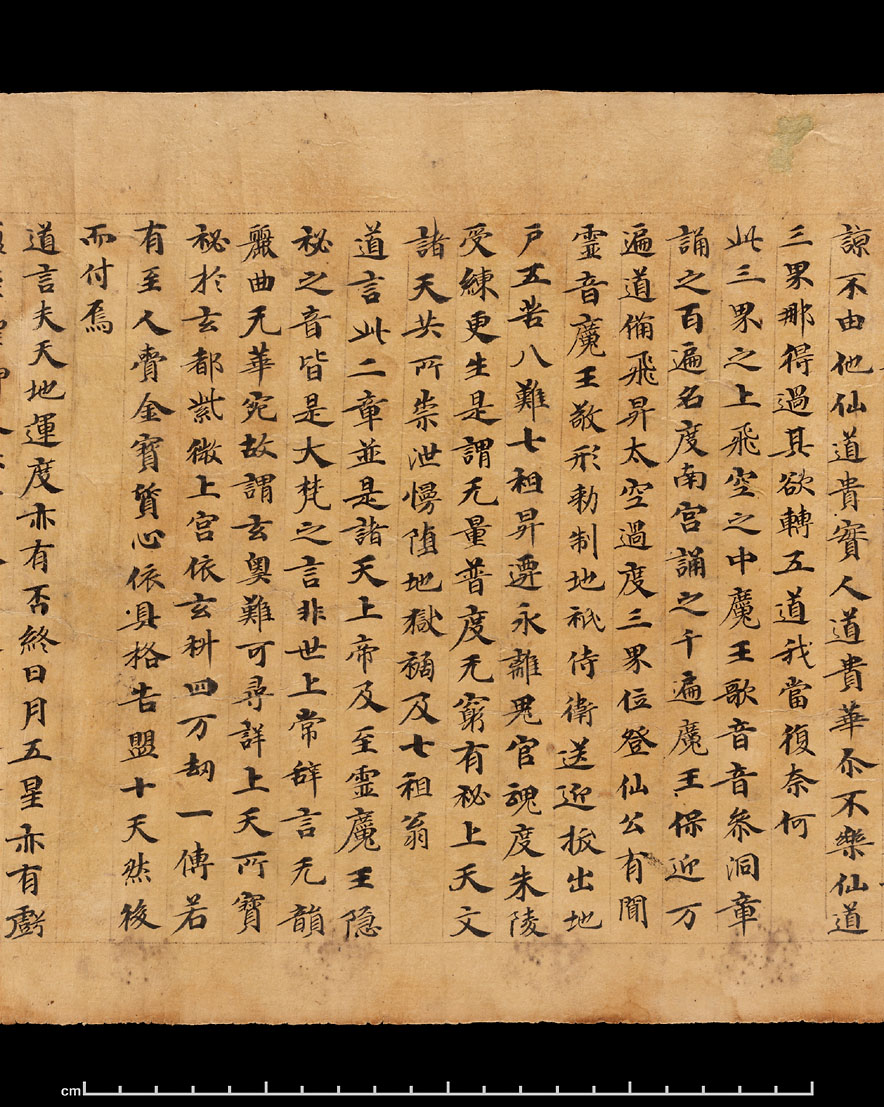 諒不由他仙道貴實人道貴華尒不樂仙道
三界那得過其欲轉五道我當復奈何
此三界之上飛空之中魔王歌音音叅洞章
誦之百遍名度南宮誦之千遍魔王保迎万
遍道備飛昇太空過度三界位登仙公有聞
靈音魔王敬形勑制地祇侍衛送迎拔出地
戶五苦八難七祖昇遷永離鬼官魂度朱陵
受練更生是謂无量普度无窮有秘上天文
諸天共所崇泄慢墮地獄禍及七祖翁
道言此二章並是諸天上帝及至靈魔王隐
秘之音皆是大梵之言非世上常辞言无韻
麗曲无華宛故謂玄奧難可尋詳上天所寶
秘於玄都紫微上宮依玄科四万劫一傳若
有至人賷金寶質心依具格告盟十天然後
而付焉
道言夫天地運度亦有否終日月五星亦有虧
cm